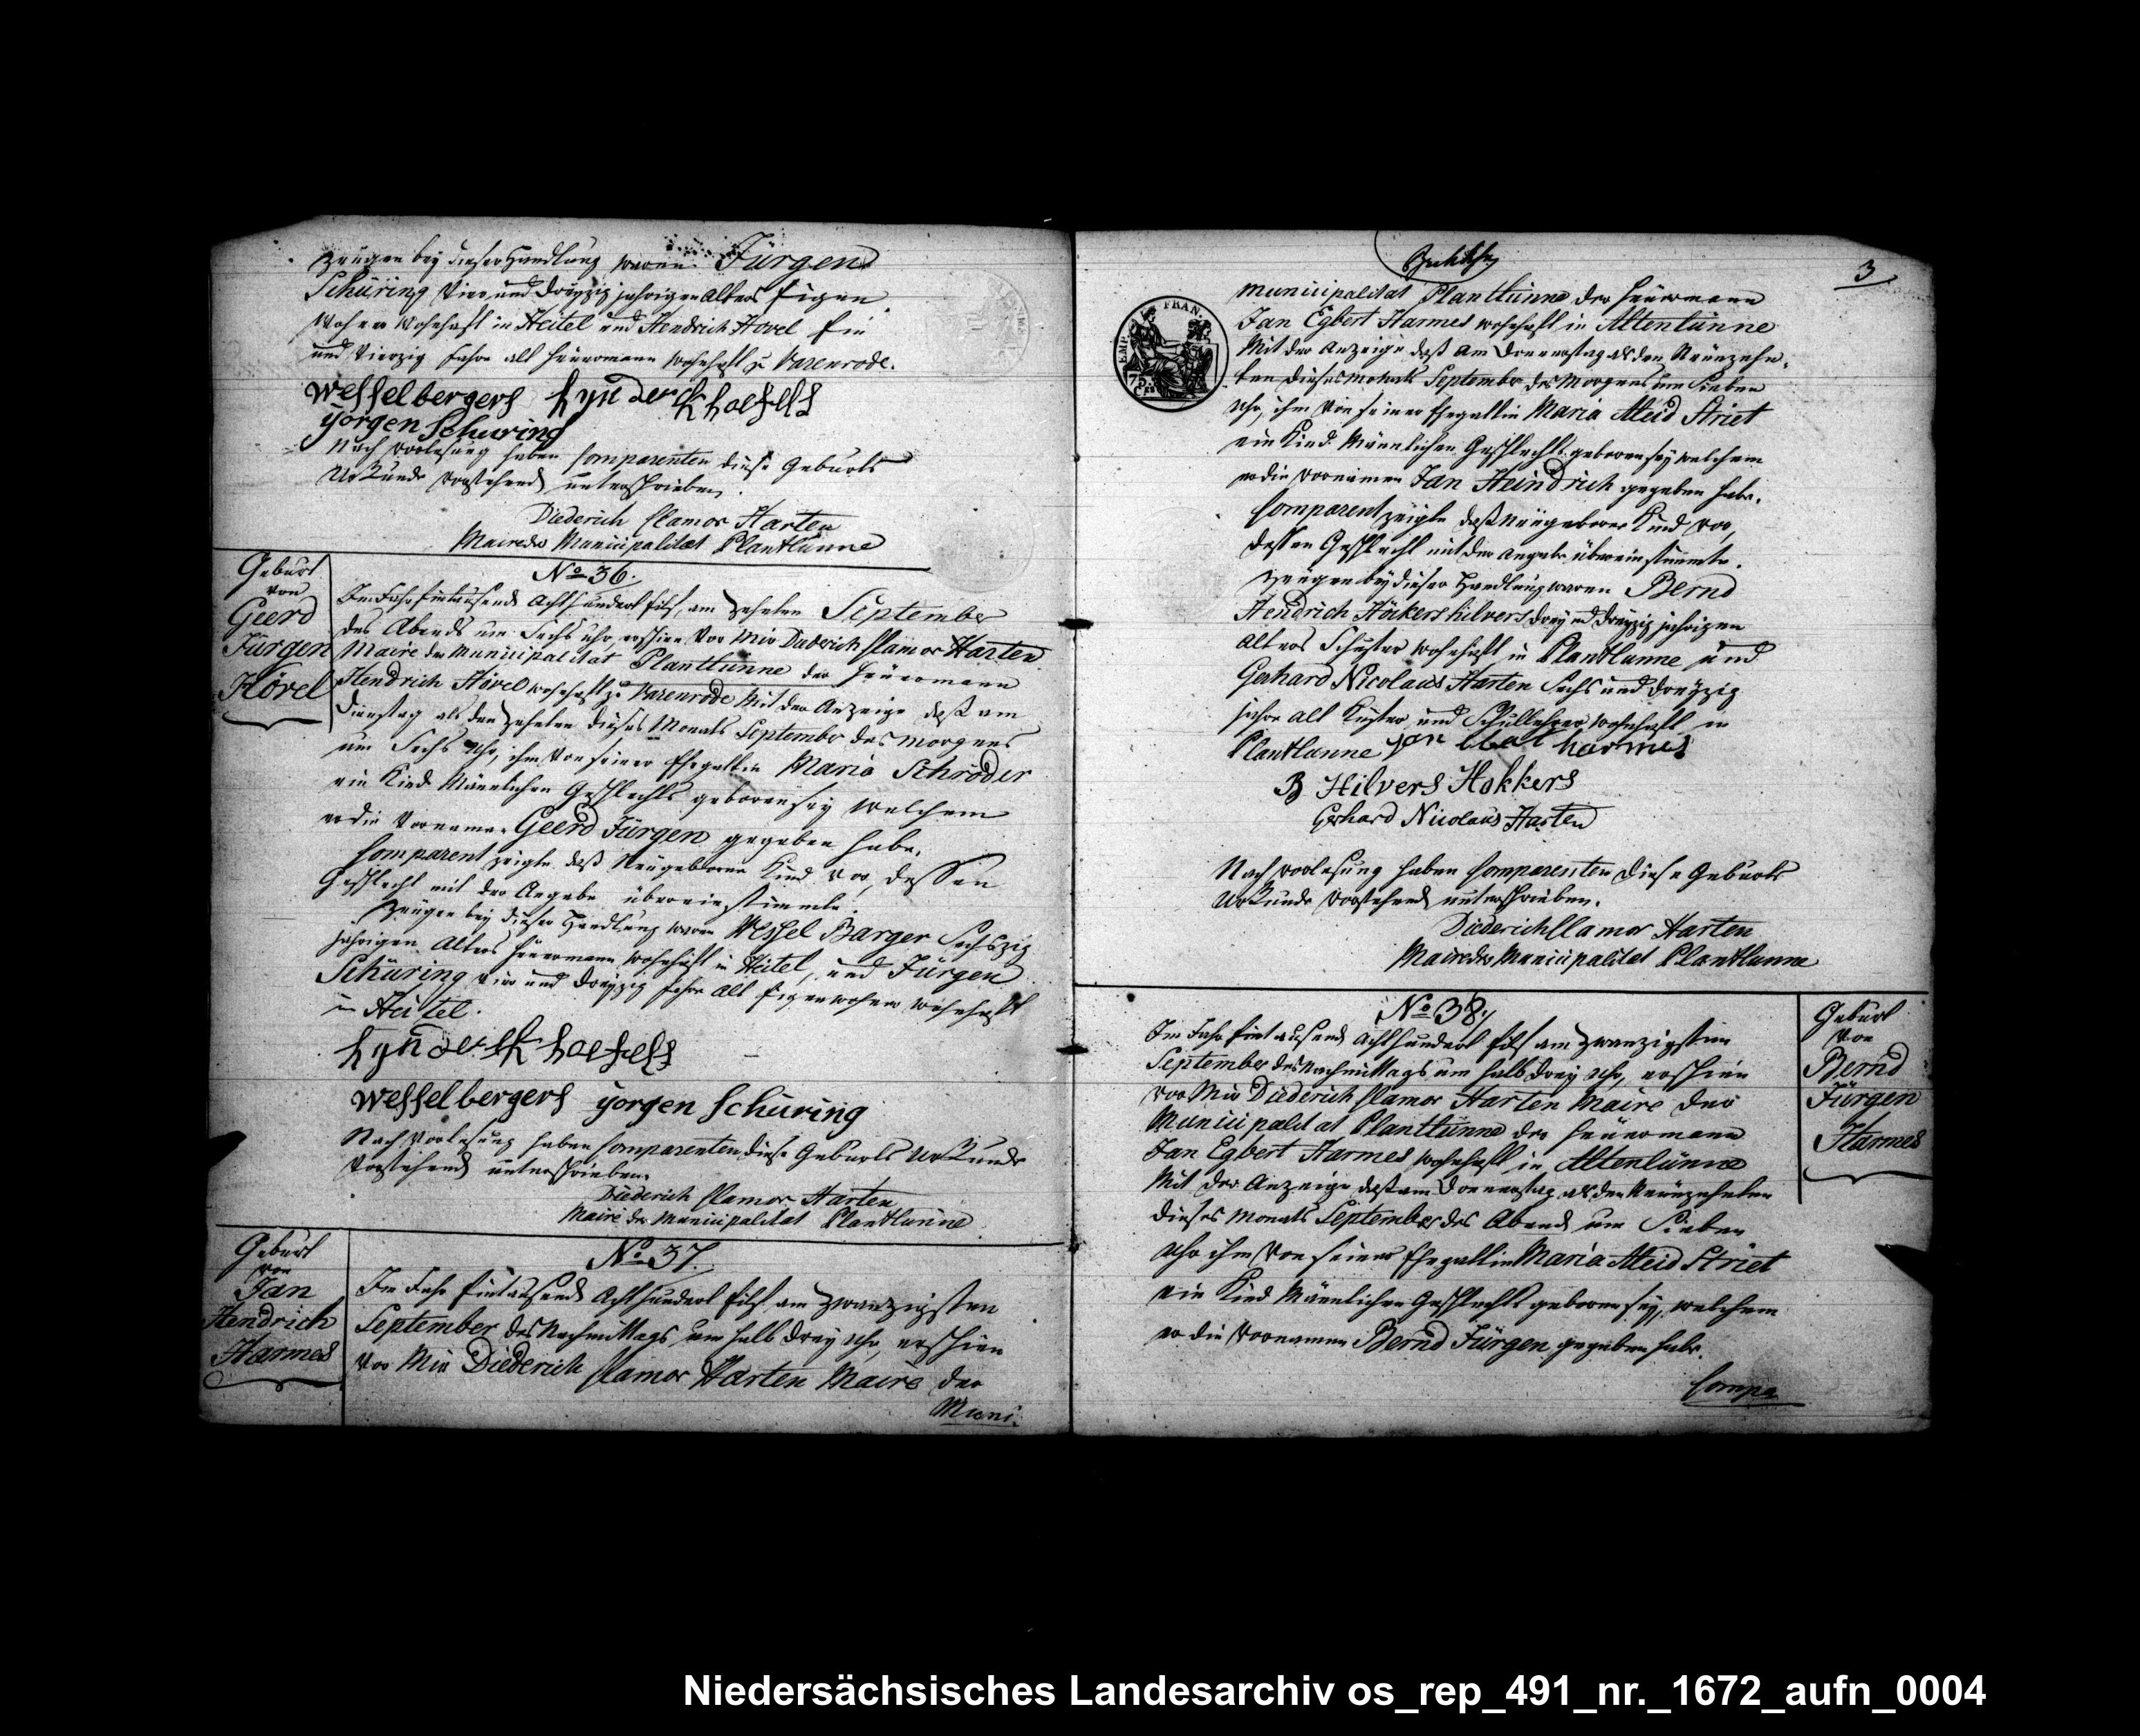 Zeugen bey dieser Handlung waren Jürgen
Schüring Vier und dreyzig jahrigen Alters Eigen
Wohner Wohnhaft in Heitel und Hendrich Hövel Ein
und Vierzig Jahre alt Heüermann Wohnhaft zu Varenrode.
Wesselbergers hynderck hoefels
yorgen Schuring
Nach Vorlesung haben Comparenten diese Geburts
Urkunde Vorstehend unterschrieben.
Diederich Clamor Harten
Maire der Municipalitat Plantlünne
Geburt
von
Geerd
Jürgen
Hövel
No 36.
Im Jahr Eintausend Achthundert Eilf, am Zehnten September
des Abends um Sechs Uhr, erschien Vor Mir Diederich Clamor Harten
Maire der Municipalitat Plantlünne der Heüermann
Hendrich Hövel wohnhaft zu Varenrode Mit der Anzeige daß am
Dienstag als den Zehnten dieses Monats September des Morgens
um Sechs Uhr, ihm Von seiner Ehegattin Maria Schröder
ein Kind Männlichen Geschlechts geboren sey welchem
er die Vorname Geerd Jürgen gegeben habe.
Comparent zeigte daß Neugeborne Kind vor, dessen
Geschlecht mit der Angabe übereinstimmte.
Zeugen bey dieser Handlung waren Wessel Barger Sechszig
jahrigen Alters Heüermann Wohnhaft in Heitel, und Jürgen
Schüring Vier und Dreyzig Jahre Alt Eigenwohner Wohnhaft
in Heitel.
hynderck hoefels
Wesselbergers yorgen Schuring
Nach Vorlesung haben Comparenten diese Geburts Urkunde
Vorstehend unterschrieben.
Diederich Clamor Harten
Maire der Municipalitat Plantlünne
Geburt
von
Jan
Hendrich
Harmes
No 37.
Im Jahr Eintausend Achthundert Eilf am Zwanzigsten
September des Nachmittags um halb drey Uhr, erschien
Vor Mir Diederich Clamor Harten Maire der
Muni.
3
EMP. FRAN.
75
Municipalitat Plantlünne der Heüermann
Jan Egbert Harmes wohnhaft in Altenlünne
Mit der Anzeige daß Am Donnerstag als den Neunzehn.
ten dieses Monats September des Morgens um Sieben
Uhr, ihm Von seiner Ehegattin Maria Aleid Striet
ein Kind Männlichen Geschlechts geboren sey welchem
er die Vornamen Jan Heindrich gegeben habe.
Comparent zeigte daß Neugeborne Kind vor,
dessen Geschlecht mit der Angabe übereinstimmte.
Zeugen bey dieser Handlung waren Bernd
Hendrich Höckers hilvers drey und dreyzig jahrigen
Alters Schuster wohnhaft in Plantlünne und
Gerhard Nicolaus Harten Sechs und Dreyzig
jahre Alt Küster und Schullehrer wohnhaft in
Plantlünne Jan harmes
B Hilvers Hokkers
Gerhard Nicolaus Harten
Nach Vorlesung haben Comparenten diese Geburts
Urkunde Vorstehend unterschrieben.
Diederich Clamor Harten
Maire der Municipalitet Plantlünne
No 38.
Im Jahr Eintausend Achthundert Eilf am Zwanzigsten
September des Nachmittags um halb drey Uhr, erschien
vor Mir Diederich Clamor Harten Maire der
Municipalitat Plantlünne der Heüermann
Jan Egbert Harmes wohnhaft in Altenlünne
Mit der Anzeige daß am Donnerstag als den Neunzehnten
dieses Monats September des Abends um Sieben
Uhr ihm Von seiner Ehegattin Maria Aleid Striet
ein Kind Männlichen Geschlechts geboren sey, welchem
er die Vornamen Bernd Jürgen gegeben habe.
Compa
Geburt
Von
Bernd
Jürgen
Harmes
Niedersächsisches Landesarchiv os_rep_491_nr._1672_aufn_0004